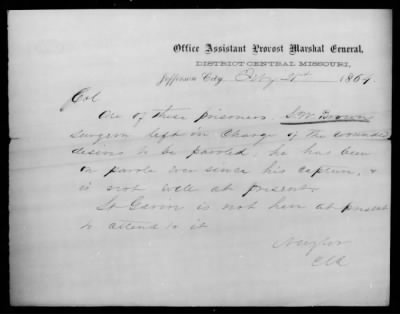 Office Assistant Provost Marshal General,
DISTRICT CENTRAL MISSOURI,
Jefferson City, 1864.
Col
One of these prisoners S.W. Brown
Surgeon left in Charge of the wounded
desires to be paroled. he has been
on parole ever since his capture, &
is not well at present
Lt Gavin is not here at present
to attend to it
Naylor
Clk